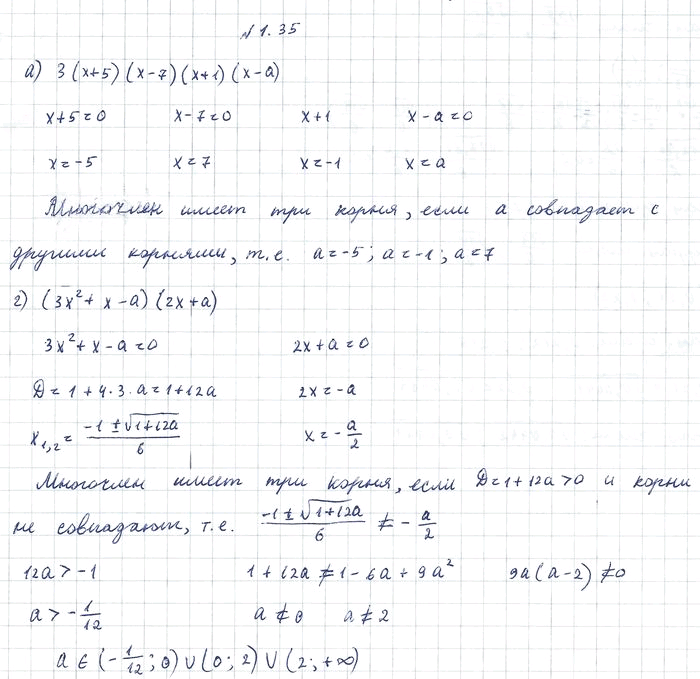 № 1.35
а) 3(x+5)(x-7)(x+1)(x-a)
x+5=0 x-7=0 x+1 x-a=0
x=-5 x=7 x=-1 x=a
Многочлен имеет три корня, если a совпадает с
другими корнями, т.е. a=-5; a=-1; a=7
г) (3x²+x-a)(2x+a)
3x²+x-a=0 2x+a=0
D=1+4·3·a=1+12a 2x=-a
x₁,₂= (-1±√(1+12a))/6 x=-a/2
Многочлен имеет три корня, если D=1+12a>0 и корни
не совпадают, т.е. (-1±√(1+12a))/6 ≠ -a/2
12a>-1 1+12a≠1-6a+9a² 9a(a-2)≠0
a>-1/12 a≠0 a≠2
a∈(-1/12;0)∪(0;2)∪(2;+∞)